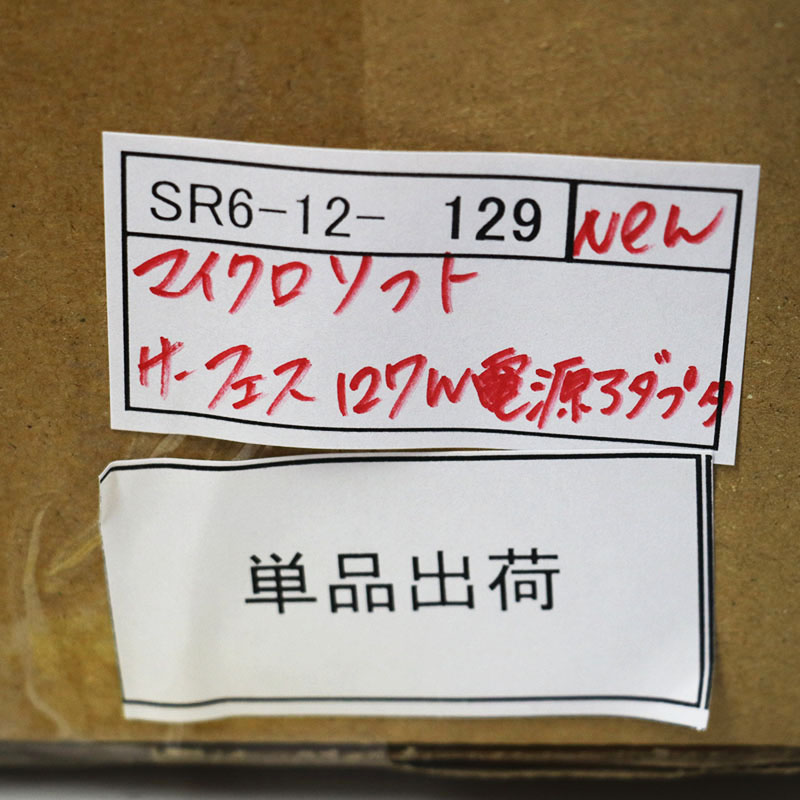 SR6-12- 129 New
マイクロソフト
サーフェス 127W電源アダプタ
単品出荷